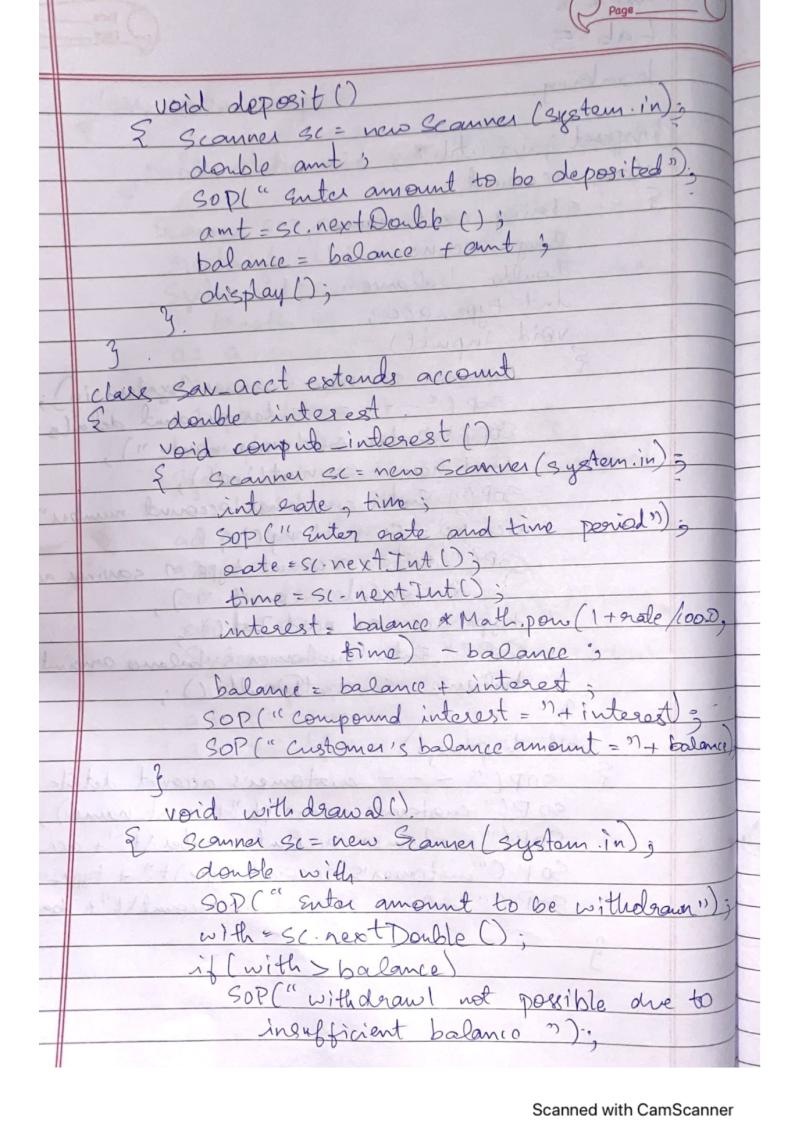 Page
void deposit ()
{ Scanner sc = new Scanner (system.in);
double amt ;
SOP(" Enter amount to be deposited");
amt = sc.nextDouble ();
balance = balance + amt ;
display ();
}.
} .
class sav_acct extends account
{ double interest
void compute_interest ()
{ Scanner sc = new Scanner (system.in);
int rate, time ;
SOP(" Enter rate and time period");
rate = sc.nextInt ();
time = sc.nextInt();
interest = balance * Math.pow(1+rate/100.0,
time) - balance ;
balance = balance + interest ;
SOP("Compound interest = "+ interest);
SOP(" Customer's balance amount = "+ balance)
}
void withdrawal ().
{ Scanner sc = new Scanner (system.in);
double with
SOP(" Enter amount to be withdrawn");
with = sc.nextDouble ();
if (with > balance)
SOP(" withdrawl not possible due to
insufficient balance ");
Scanned with CamScanner